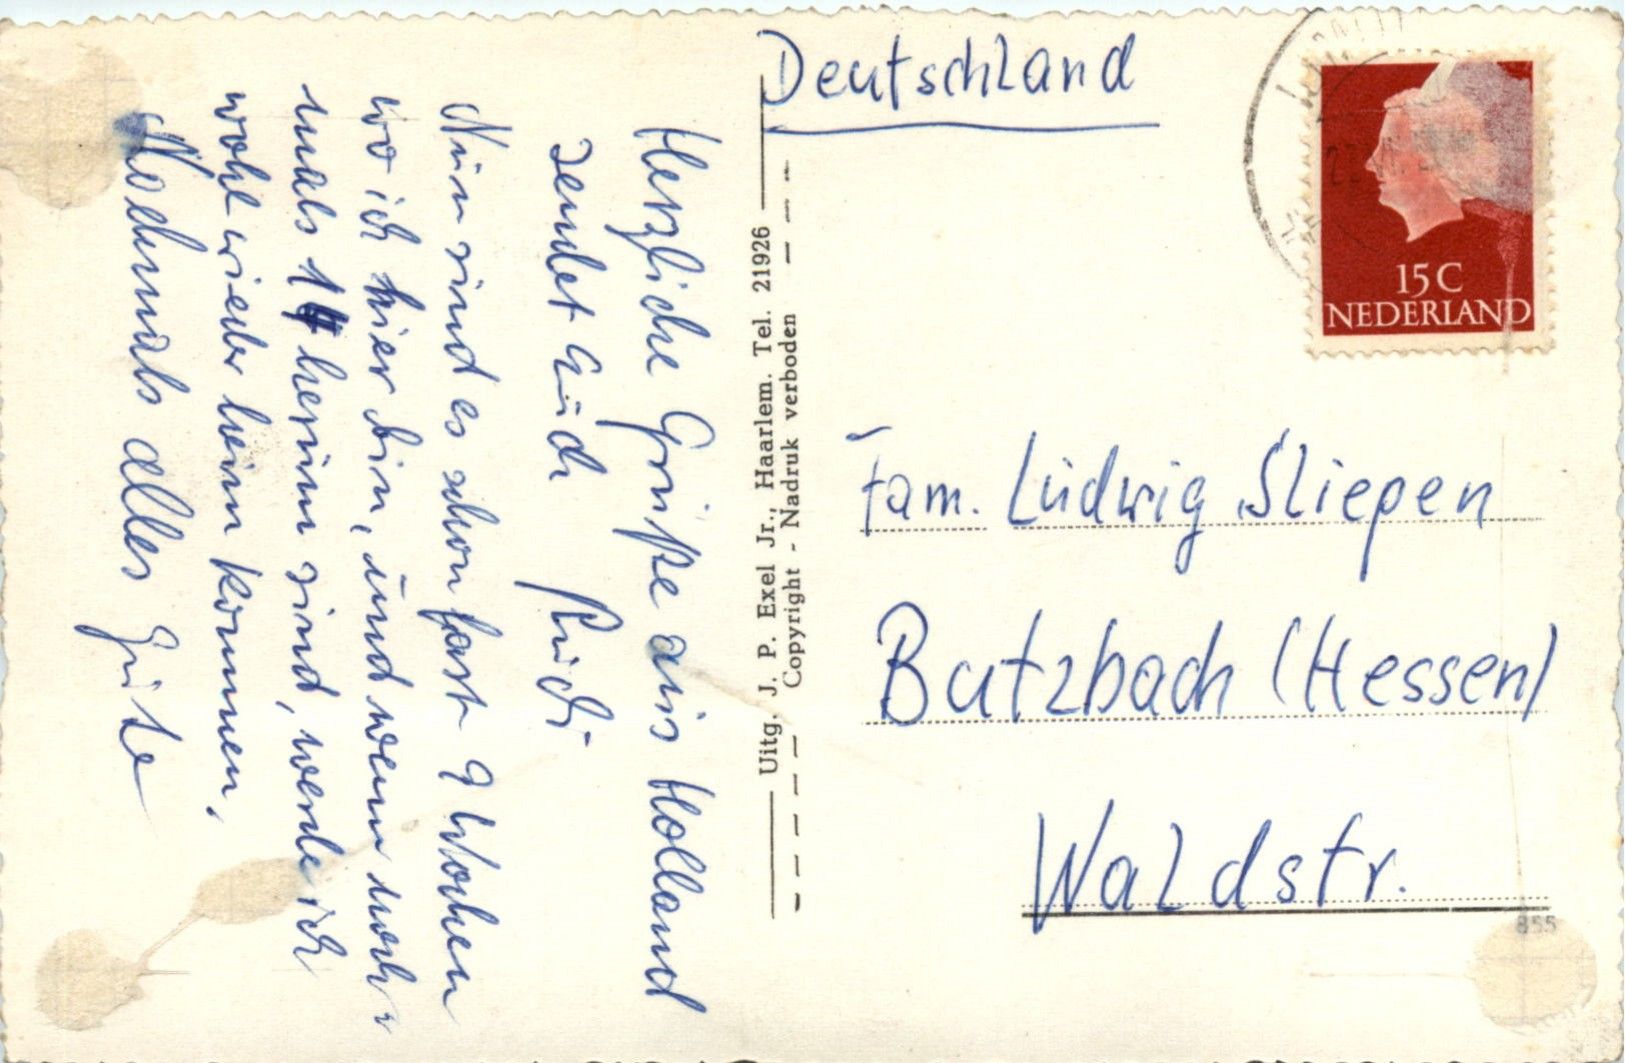 Herzliche Grüße aus Holland
sendet Euch Rudi
Nun sind es schon fast 9 Wochen
wo ich hier bin, und wenn noch-
mals 14 herum sind, werde ich
wohl wieder heim kommen.
Nochmals alles Gute
Uitg. J. P. Exel Jr., Haarlem. Tel. 21926
Copyright - Nadruk verboden
Deutschland
15 C
NEDERLAND
Fam. Ludwig Sliepen
Butzbach (Hessen)
Waldstr.
855